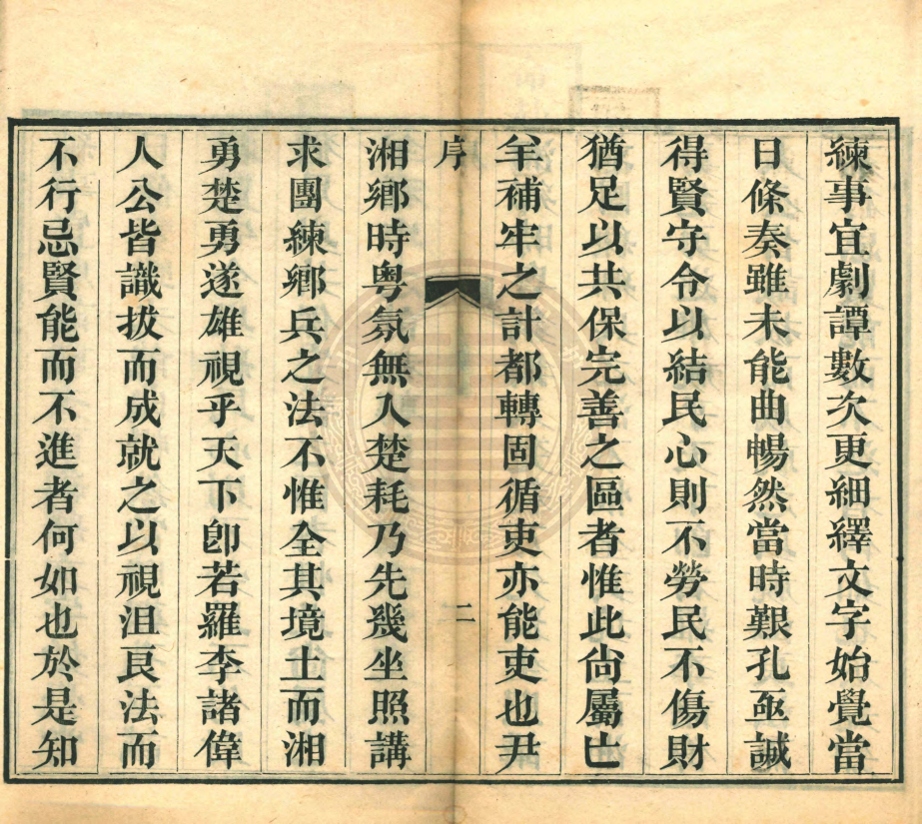 練事宜劇譚數次更細繹文字始覺當
日條奏雖未能曲暢然當時艱孔亟誠
得賢守令以結民心則不勞民不傷財
猶足以共保完善之區者惟此尙屬亡
羊補牢之計都轉固循吏亦能吏也尹
序
二
湘鄉時粤氛無入楚耗乃先幾坐照講
求團練鄉兵之法不惟全其境土而湘
勇楚勇遂雄視乎天下卽若羅李諸偉
人公皆識拔而成就之以視沮良法而
不行忌賢能而不進者何如也於是知